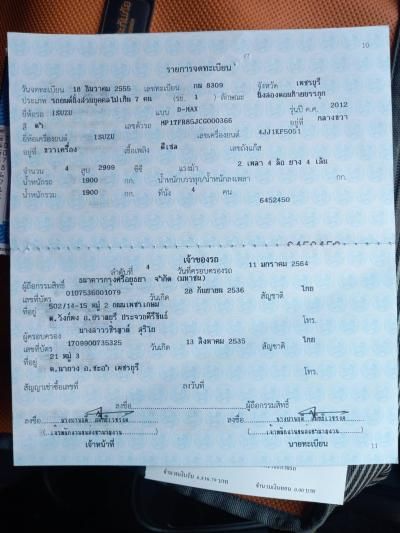 10
รายการจดทะเบียน
วันจดทะเบียน 18 ธันวาคม 2555 เลขทะเบียน กน 8309 จังหวัด เพชรบุรี
ประเภท รถยนต์นั่งส่วนบุคคลไม่เกิน 7 คน (รย. 1 ) ลักษณะ นั่งสองตอนท้ายบรรทุก
ยี่ห้อรถ ISUZU แบบ D-MAX รุ่นปี ค.ศ. 2012
สี ดำ เลขตัวรถ MP1TFR85JCG000366 อยู่ที่ กลางขวา
ยี่ห้อเครื่องยนต์ ISUZU เลขเครื่องยนต์ 4JJ1KF5051
อยู่ที่ ขวาเครื่อง เชื้อเพลิง ดีเซล เลขถังแก๊ส
จำนวน 4 สูบ 2999 ซีซี แรงม้า 2 เพลา 4 ล้อ ยาง 4 เส้น
น้ำหนักรถ 1900 กก. น้ำหนักบรรทุก/น้ำหนักลงเพลา กก.
น้ำหนักรวม 1900 กก. ที่นั่ง 4 คน
6452450
6452450
เจ้าของรถ
ลำดับที่ 4 วันที่ครอบครองรถ 11 มกราคม 2564
ผู้ถือกรรมสิทธิ์ ธนาคารกรุงศรีอยุธยา จำกัด (มหาชน)
เลขที่บัตร 0107536001079 วันเกิด 28 กันยายน 2536 สัญชาติ ไทย
ที่อยู่ 502/14-15 หมู่ 2 ถนนเพชรเกษม
ต.วังก์พง อ.ปราณบุรี ประจวบคีรีขันธ์ โทร.
ผู้ครอบครอง สุริโย
เลขที่บัตร 1709900735325 วันเกิด 13 สิงหาคม 2535 สัญชาติ ไทย
ที่อยู่ 21 หมู่ 3
ต.นายาง อ.ชะอำ เพชรบุรี โทร.
สัญญาเช่าซื้อเลขที่ ลงวันที่
ลงชื่อ ผู้ถือกรรมสิทธิ์
ลงชื่อ ลงชื่อ
เจ้าหน้าที่ นายทะเบียน
11